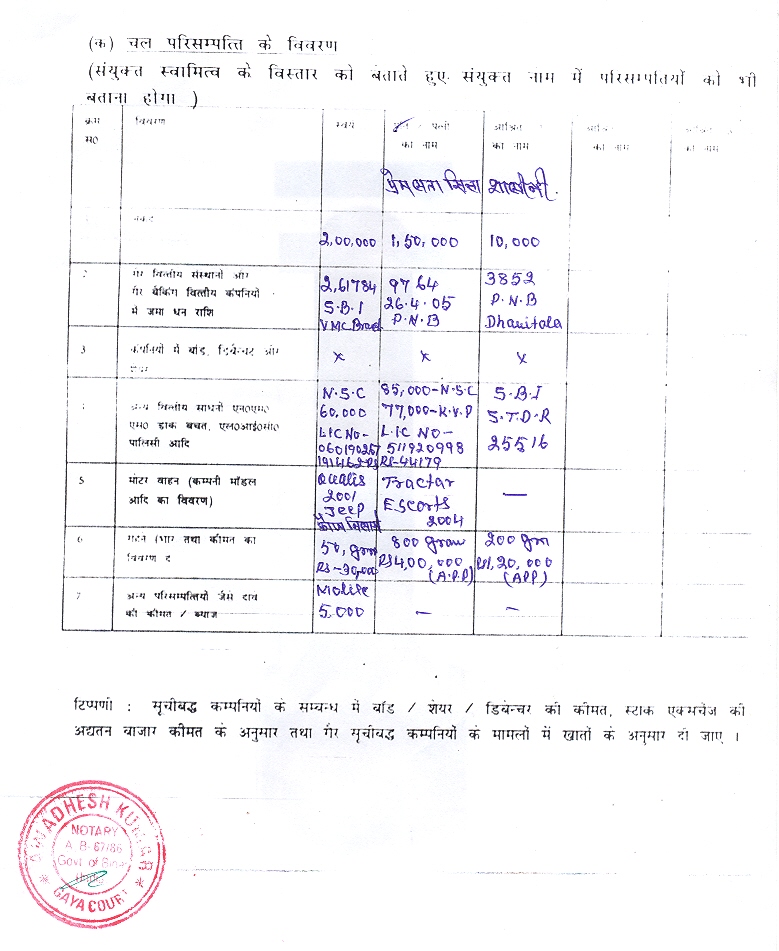 (क) चल परिसम्पत्ति के विवरण
(संयुक्त स्वामित्व के विस्तार को बताते हुए संयुक्त नाम में परिसम्पतियों को भी
बताना होगा )
क्रम विवरण स्वयं पत्नी आश्रित
स०
का नाम का नाम का नाम का नाम
प्रेमलता सिन्हा
2,00,000 1,50,000 10,000
2 गैर वित्तीय संस्थानों और 2,61784 9764 3852
गैर बैंकिंग वित्तीय कंपनियों S.B.I 26.4.05 P.N.B
में जमा धन राशि VMC P.N.B
3 कंपनियों में बांड, डिबेन्चर और x x x
शेयर
अन्य वित्तीय साधनों एन०एस० N.S.C 85,000-N.S.C S.B.I
एस० डाक बचत, एल०आई०सी० 60,000 77,000-K.V.P S.T.D.R
पालिसी आदि LIC NO- L.I.C NO- 25516
511920998
RS-44179
5 मोटर वाहन (कम्पनी मॉडल Qualis Tractar —
आदि का विवरण) 2001 Escorts
Jeep 2004
6 गहने (भार तथा कीमत का 50, gm 800 gram 200 gm
विवरण दें RS-30,000 RS 4,00,000 RS 1,20,000
(A.P.P) (APP)
7 अन्य परिसम्पत्तियों जैसे दाव
की कीमत / ब्याज 5,000 — —
टिप्पणी : सूचीबद्ध कम्पनियों के सम्बन्ध में बांड / शेयर / डिबेन्चर की कीमत, स्टाक एक्सचेंज की
अद्यतन बाजार कीमत के अनुसार तथा गैर सूचीबद्ध कम्पनियों के मामलों में खातों के अनुसार दी जाए ।
AWADHESH KUMAR
NOTARY
A B-67/86
Govt of
GAYA COURT